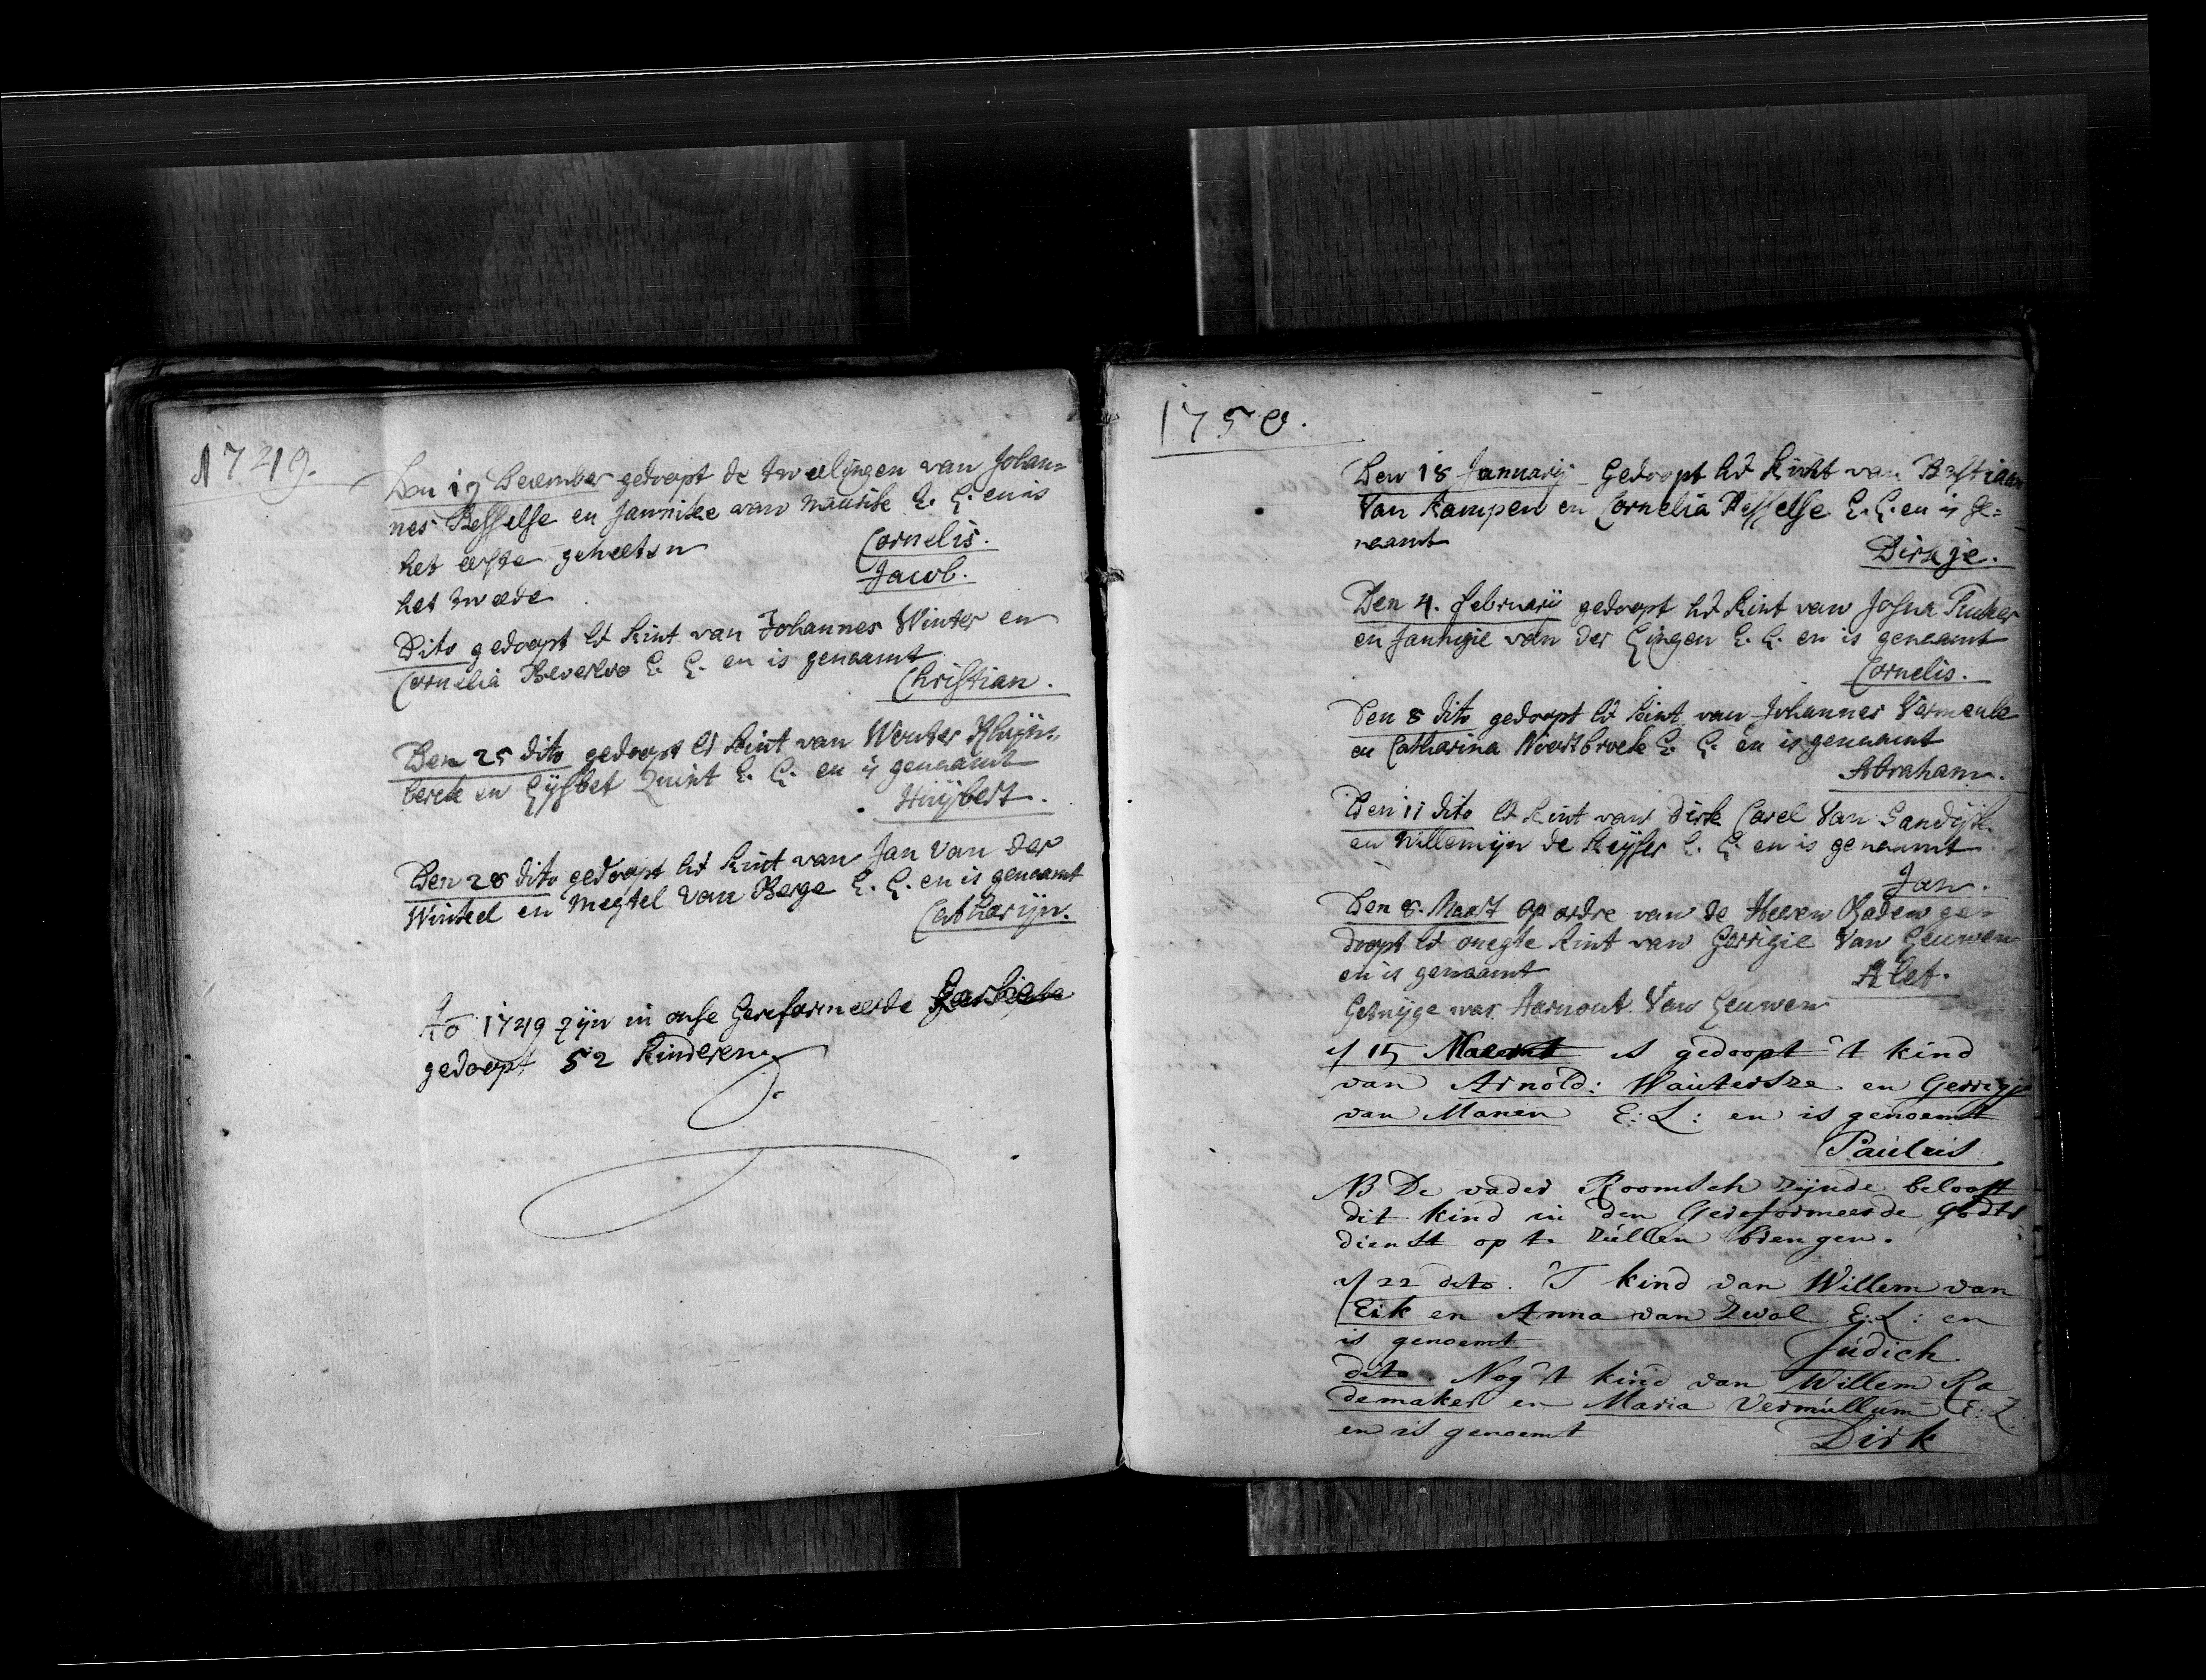 1749.
Den 19 December gedoopt de tweelingen van Johan=
nes Besselse en Jannike van Maurik E. L. en is
het eerste geheeten Cornelis.
het twede Jacob.
Dito gedoopt het kint van Johannes Winter en
Cornelia E. L. en is genaamt
Christian.
Den 25 dito gedoopt het kint van Wouter Rhijn=
berck en Lijsbet Quint E. L. en is genaamt
Huijbert.
Den 28 dito gedoopt het kint van Jan van der
Winkel en Megtel van Berge E. L. en is genaamt
Catharijn.
Ao 1749 zijn in onse Gereformeerde
gedoopt 52 kinderen.
1750.
Den 18 Januarij Gedoopt het kint van Bastiaan
van Kampen en Cornelia Besselse E. L. en is ge=
naamt
Dirkje.
Den 4. februarij gedoopt het kint van Josua
en Jannigie van der Lingen E. L. en is genaamt
Cornelis.
Den 8 dito gedoopt het kint van Johannes Vermeule
en Catharina Noortbroek E. L. en is genaamt
Abraham.
Den 11 dito het kint van Dirk Carel van Sandijk
en Willemijn de Keijser E. L. en is genaamt
Jan.
Den 8. Maart op ordre van de Heeren Raden ge=
doopt het onegte kint van Gerrigie van Leuwen
en is genaamt Alet.
Getuijge was Aarnout van Leuwen
15 Maart is gedoopt 't kind
van Arnold: Wautersze en Gerrigje
van Manen E: L: en is genoemt
Paulus
NB De vader Roomsch zijnde belooft
dit kind in den Gereformeerde godts
dienst op te zullen brengen.
22 dito. 'T kind van Willem van
Eik en Anna van Zwol E: L: en
is genoemt Judich
dito. Nog 't kind van Willem Ra
demaker en Maria Vermullum E: L
en is genoemt Dirk